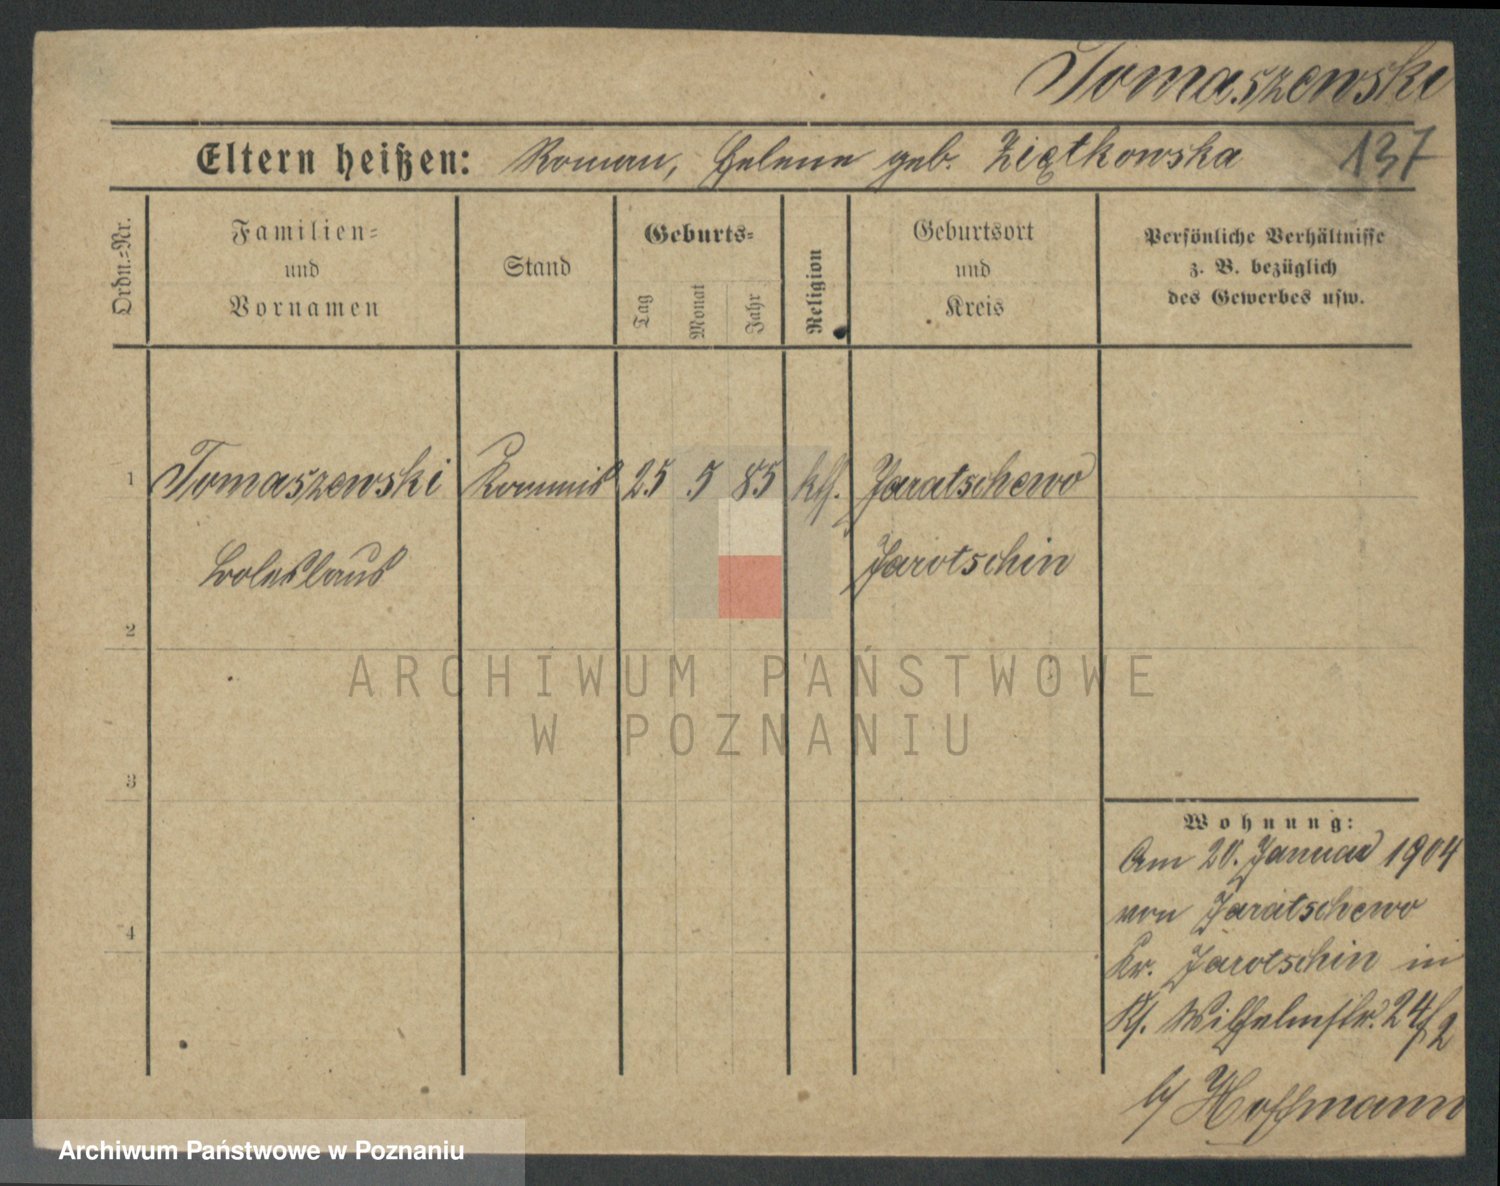 Tomaszewski
Eltern heißen: Roman, Helene geb. Ziętkowska 137
Ordn.-Nr.
Familien-
und
Vornamen
Stand
Geburts-
Tag
Monat
Jahr
Religion
Geburtsort
und
Kreis
Persönliche Verhältnisse
z. B. bezüglich
des Gewerbes usw.
1 Tomaszewski Kommis 25 5 85 kth. Jaratschewo
Boleslaus Jarotschin
2
ARCHIWUM PAŃSTWOWE
W POZNANIU
3
Wohnung:
Am 20. Januar 1904
von Jaratschewo
4
Kr. Jarotschin in
Wilhelmstr. 24/2
b/ Hoffmann
Archiwum Państwowe w Poznaniu